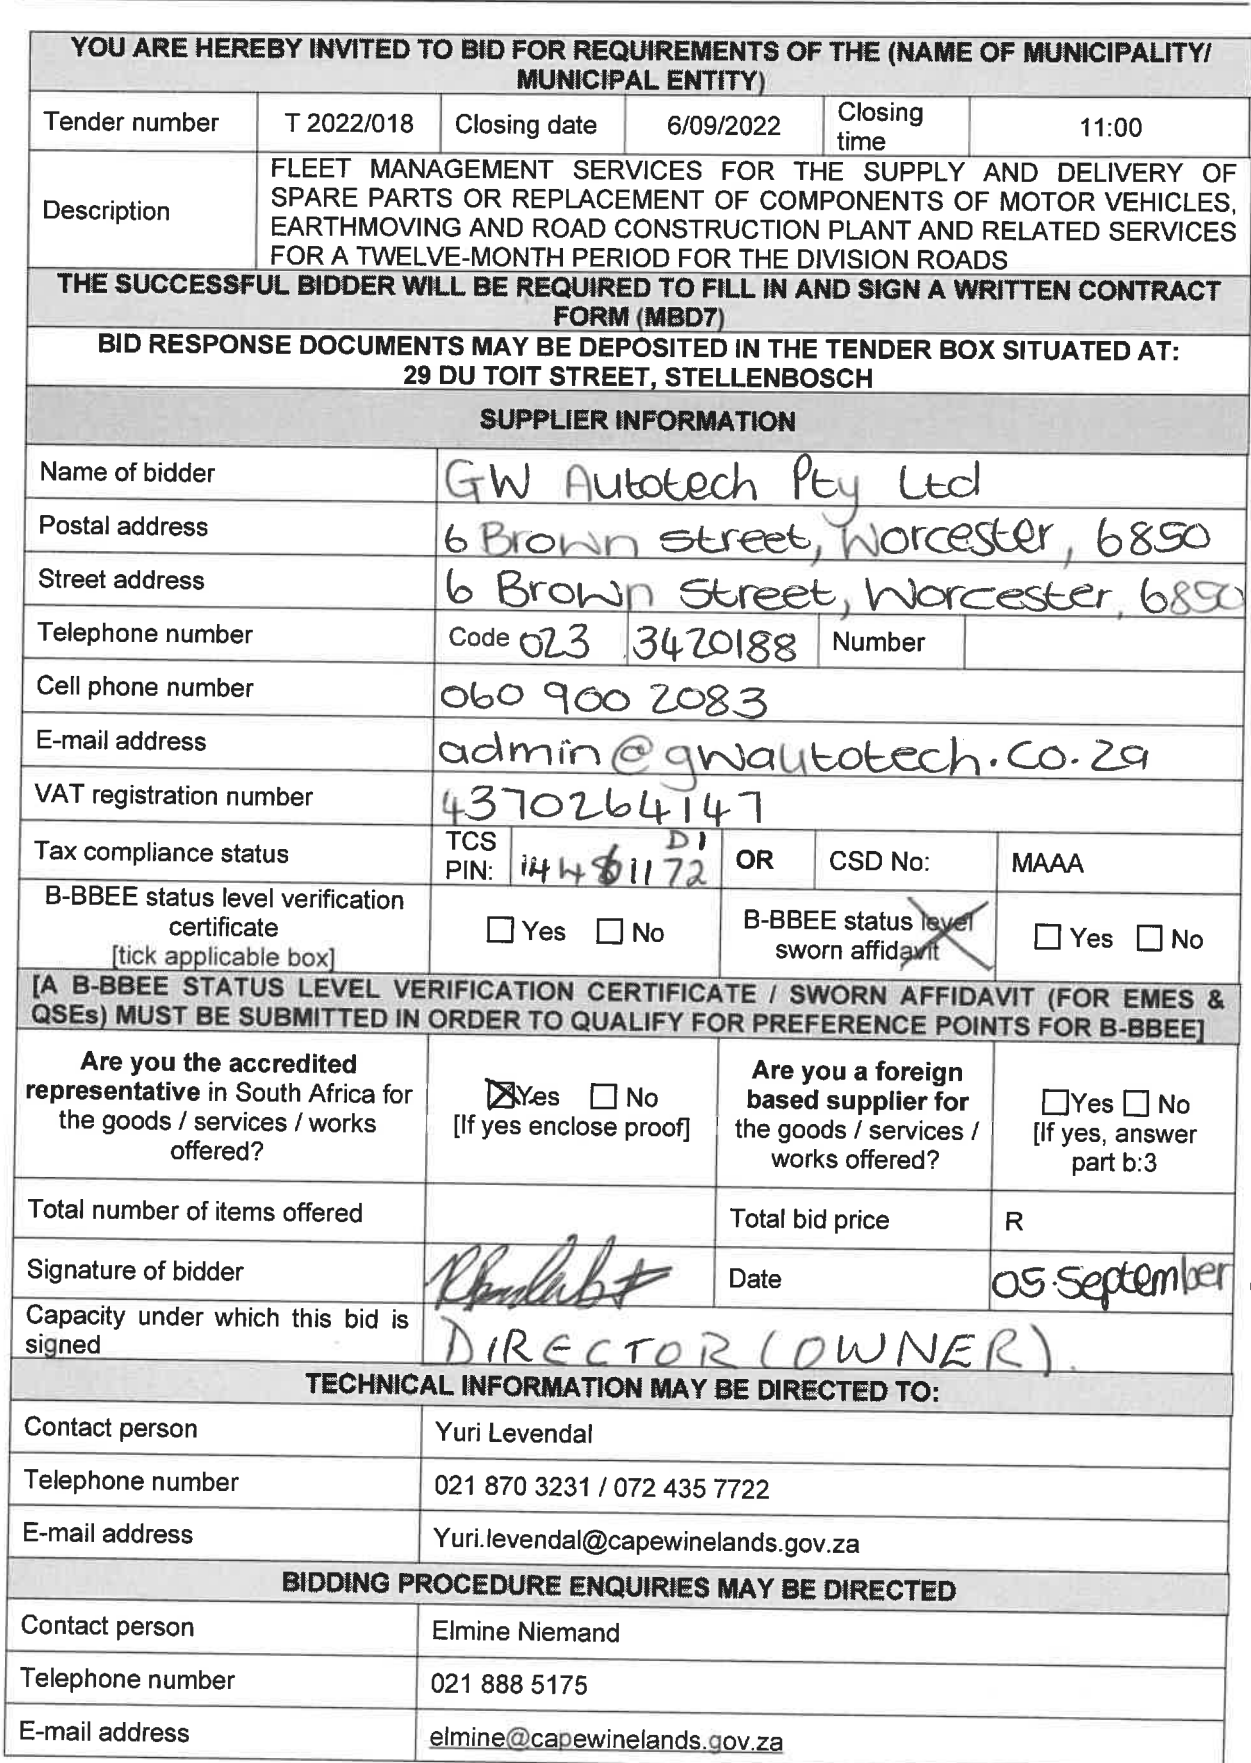 YOU ARE HEREBY INVITED TO BID FOR REQUIREMENTS OF THE (NAME OF MUNICIPALITY/
MUNICIPAL ENTITY)
Tender number T 2022/018 Closing date 6/09/2022 Closing time 11:00
Description
FLEET MANAGEMENT SERVICES FOR THE SUPPLY AND DELIVERY OF
SPARE PARTS OR REPLACEMENT OF COMPONENTS OF MOTOR VEHICLES,
EARTHMOVING AND ROAD CONSTRUCTION PLANT AND RELATED SERVICES
FOR A TWELVE-MONTH PERIOD FOR THE DIVISION ROADS
THE SUCCESSFUL BIDDER WILL BE REQUIRED TO FILL IN AND SIGN A WRITTEN CONTRACT
FORM (MBD7)
BID RESPONSE DOCUMENTS MAY BE DEPOSITED IN THE TENDER BOX SITUATED AT:
29 DU TOIT STREET, STELLENBOSCH
SUPPLIER INFORMATION
Name of bidder GW Autotech Pty Ltd
Postal address 6 Brown street, Worcester, 6850
Street address 6 Brown Street, Worcester, 6850
Telephone number Code 023 3420188 Number
Cell phone number 060 900 2083
E-mail address admin@gwautotech.co.za
VAT registration number 4370264147
Tax compliance status TCS PIN: D1 OR CSD No: MAAA
B-BBEE status level verification
certificate
[tick applicable box]
☐ Yes ☐ No
B-BBEE status level
sworn affidavit
☐ Yes ☐ No
[A B-BBEE STATUS LEVEL VERIFICATION CERTIFICATE / SWORN AFFIDAVIT (FOR EMES &
QSEs) MUST BE SUBMITTED IN ORDER TO QUALIFY FOR PREFERENCE POINTS FOR B-BBEE]
Are you the accredited
representative in South Africa for
the goods / services / works
offered?
☒ Yes ☐ No
[If yes enclose proof]
Are you a foreign
based supplier for
the goods / services /
works offered?
☐ Yes ☐ No
[If yes, answer
part b:3
Total number of items offered Total bid price R
Signature of bidder Date 05 September
Capacity under which this bid is
signed
DIRECTOR (OWNER).
TECHNICAL INFORMATION MAY BE DIRECTED TO:
Contact person Yuri Levendal
Telephone number 021 870 3231 / 072 435 7722
E-mail address Yuri.levendal@capewinelands.gov.za
BIDDING PROCEDURE ENQUIRIES MAY BE DIRECTED
Contact person Elmine Niemand
Telephone number 021 888 5175
E-mail address elmine@capewinelands.gov.za